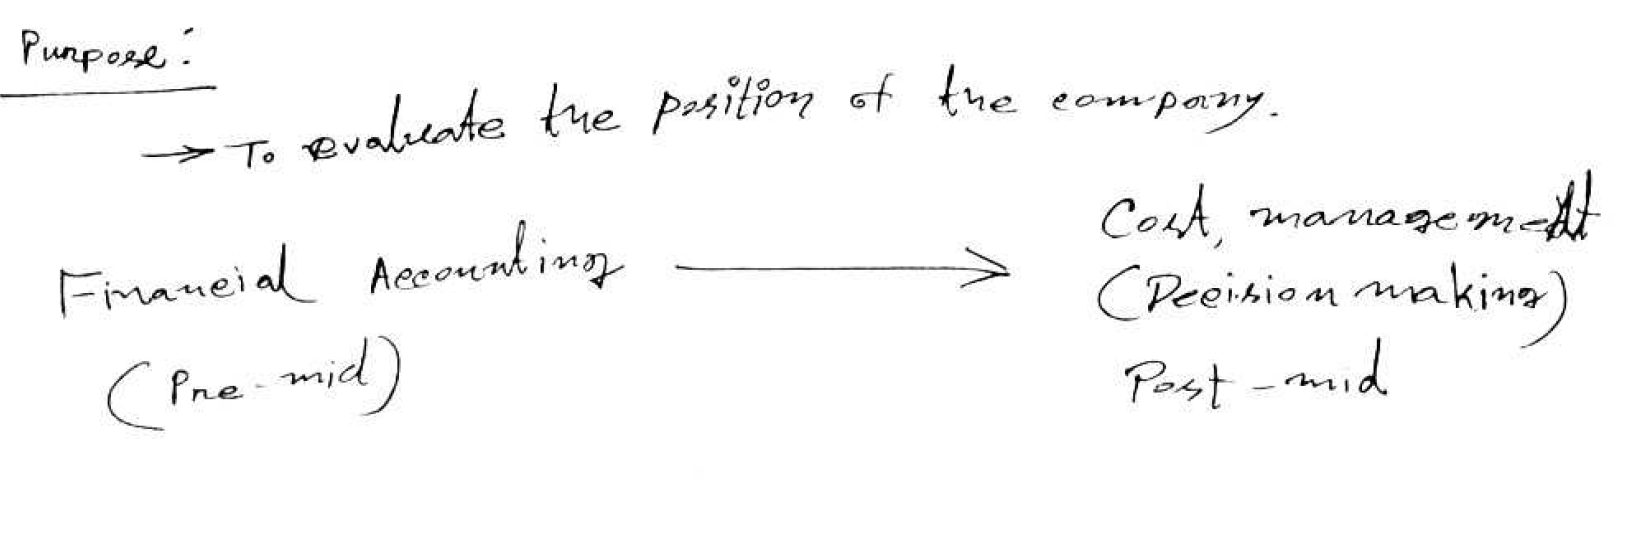 Purpose:
→ To evaluate the position of the company.
Financial Accounting → Cost, management
(Decision making)
(Pre-mid)
Post-mid